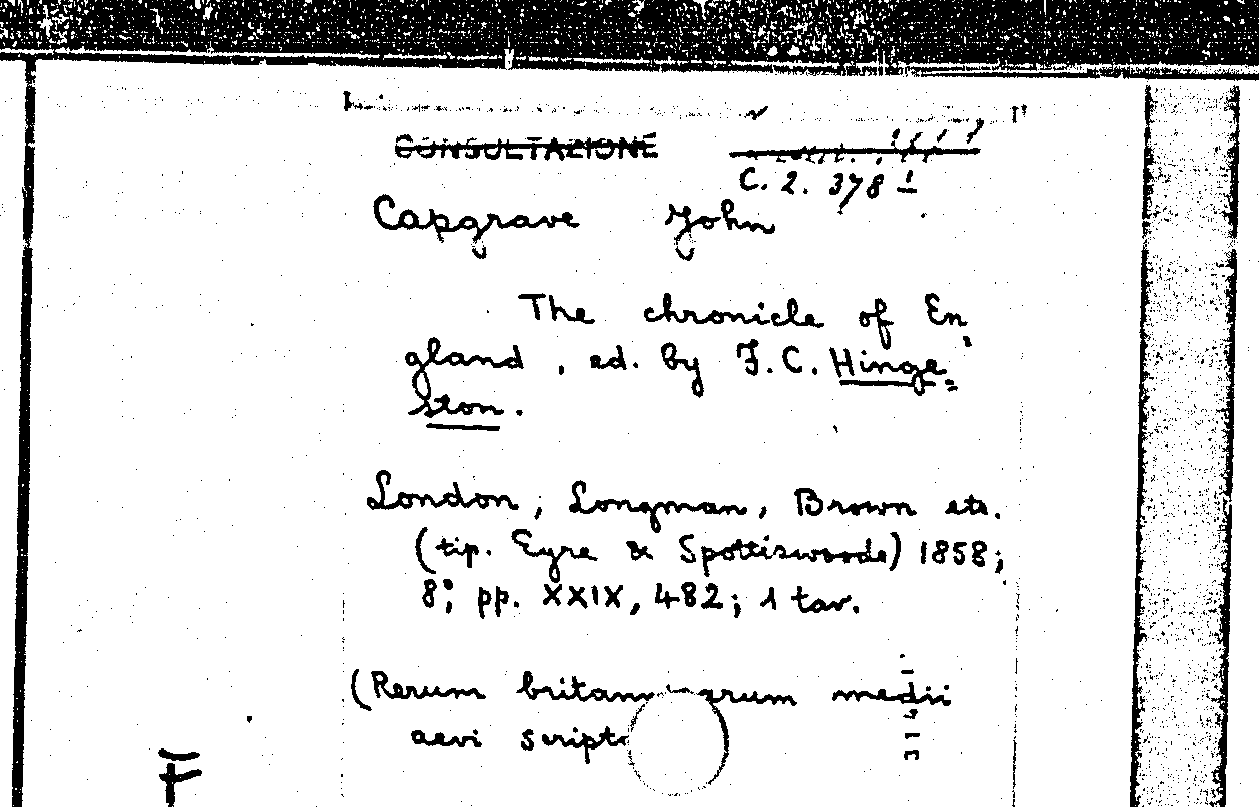 CONSULTAZIONE
C. 2. 378 1
Capgrave John
The chronicle of En
gland, ed. by F.C. Hinge=
ston.
London, Longman, Brown etc.
(tip. Eyre & Spottiswoode) 1858;
8°; pp. XXIX, 482; 1 tav.
(Rerum britannicarum medii
aevi scripto
F